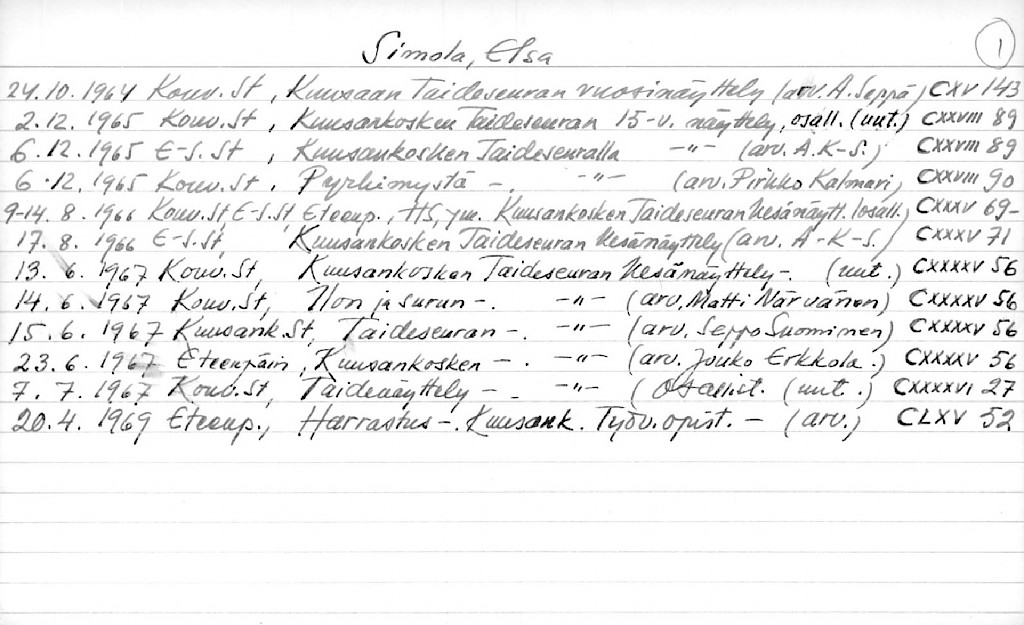 Simola, Elsa 1
24.10.1964 Kouv.St, Kuusaan Taideseuran vuosinäyttely (arv. A. Seppä) CXV 143
2.12.1965 Kouv.St, Kuusankosken Taideseuran 15-v. näyttely, osall. (uut.) CXXVIII 89
6.12.1965 E-S.St, Kuusankosken Taideseuralla -"- (arv. A.K-S.) CXXVIII 89
6.12.1965 Kouv.St, Pyrkimystä -. -"- (arv. Pirkko Kalmari) CXXVIII 90
9-14.8.1966 Kouv.St, E-S.St, Eteenp., HS, ym. Kuusankosken Taideseuran kesänäytt. (osall.) CXXXV 69-
17.8.1966 E-S.St, Kuusankosken Taideseuran kesänäyttely (arv. A-K-S.) CXXXV 71
13.6.1967 Kouv.St, Kuusankosken Taideseuran kesänäyttely -. (uut.) CXXXXV 56
14.6.1967 Kouv.St, Ilon ja surun -. -"- (arv. Matti Närvänen) CXXXXV 56
15.6.1967 Kuusank.St, Taideseuran -. -"- (arv. Seppo Suominen) CXXXXV 56
23.6.1967 Eteenpäin, Kuusankosken -. -"- (arv. Jouko Erkkola.) CXXXXV 56
7.7.1967 Kouv.St, Taidenäyttely -. -"- (Osallist. (uut.) CXXXXVI 27
20.4.1969 Eteenp., Harrastus -. Kuusank. Työv.opist. - (arv.) CLXV 52